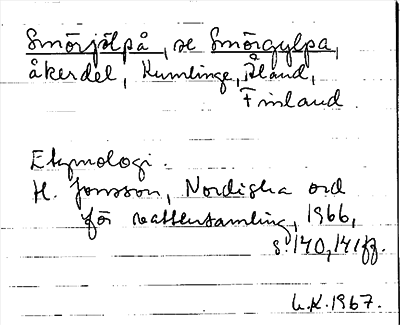 Smörjölpå, se Smörgylpa,
åkerdel, Kumlinge, Åland,
Finland.
Etymologi.
H. Jonsson, Nordiska ord
för vattensamling, 1966,
s. 140, 141ff.
L.K. 1967.